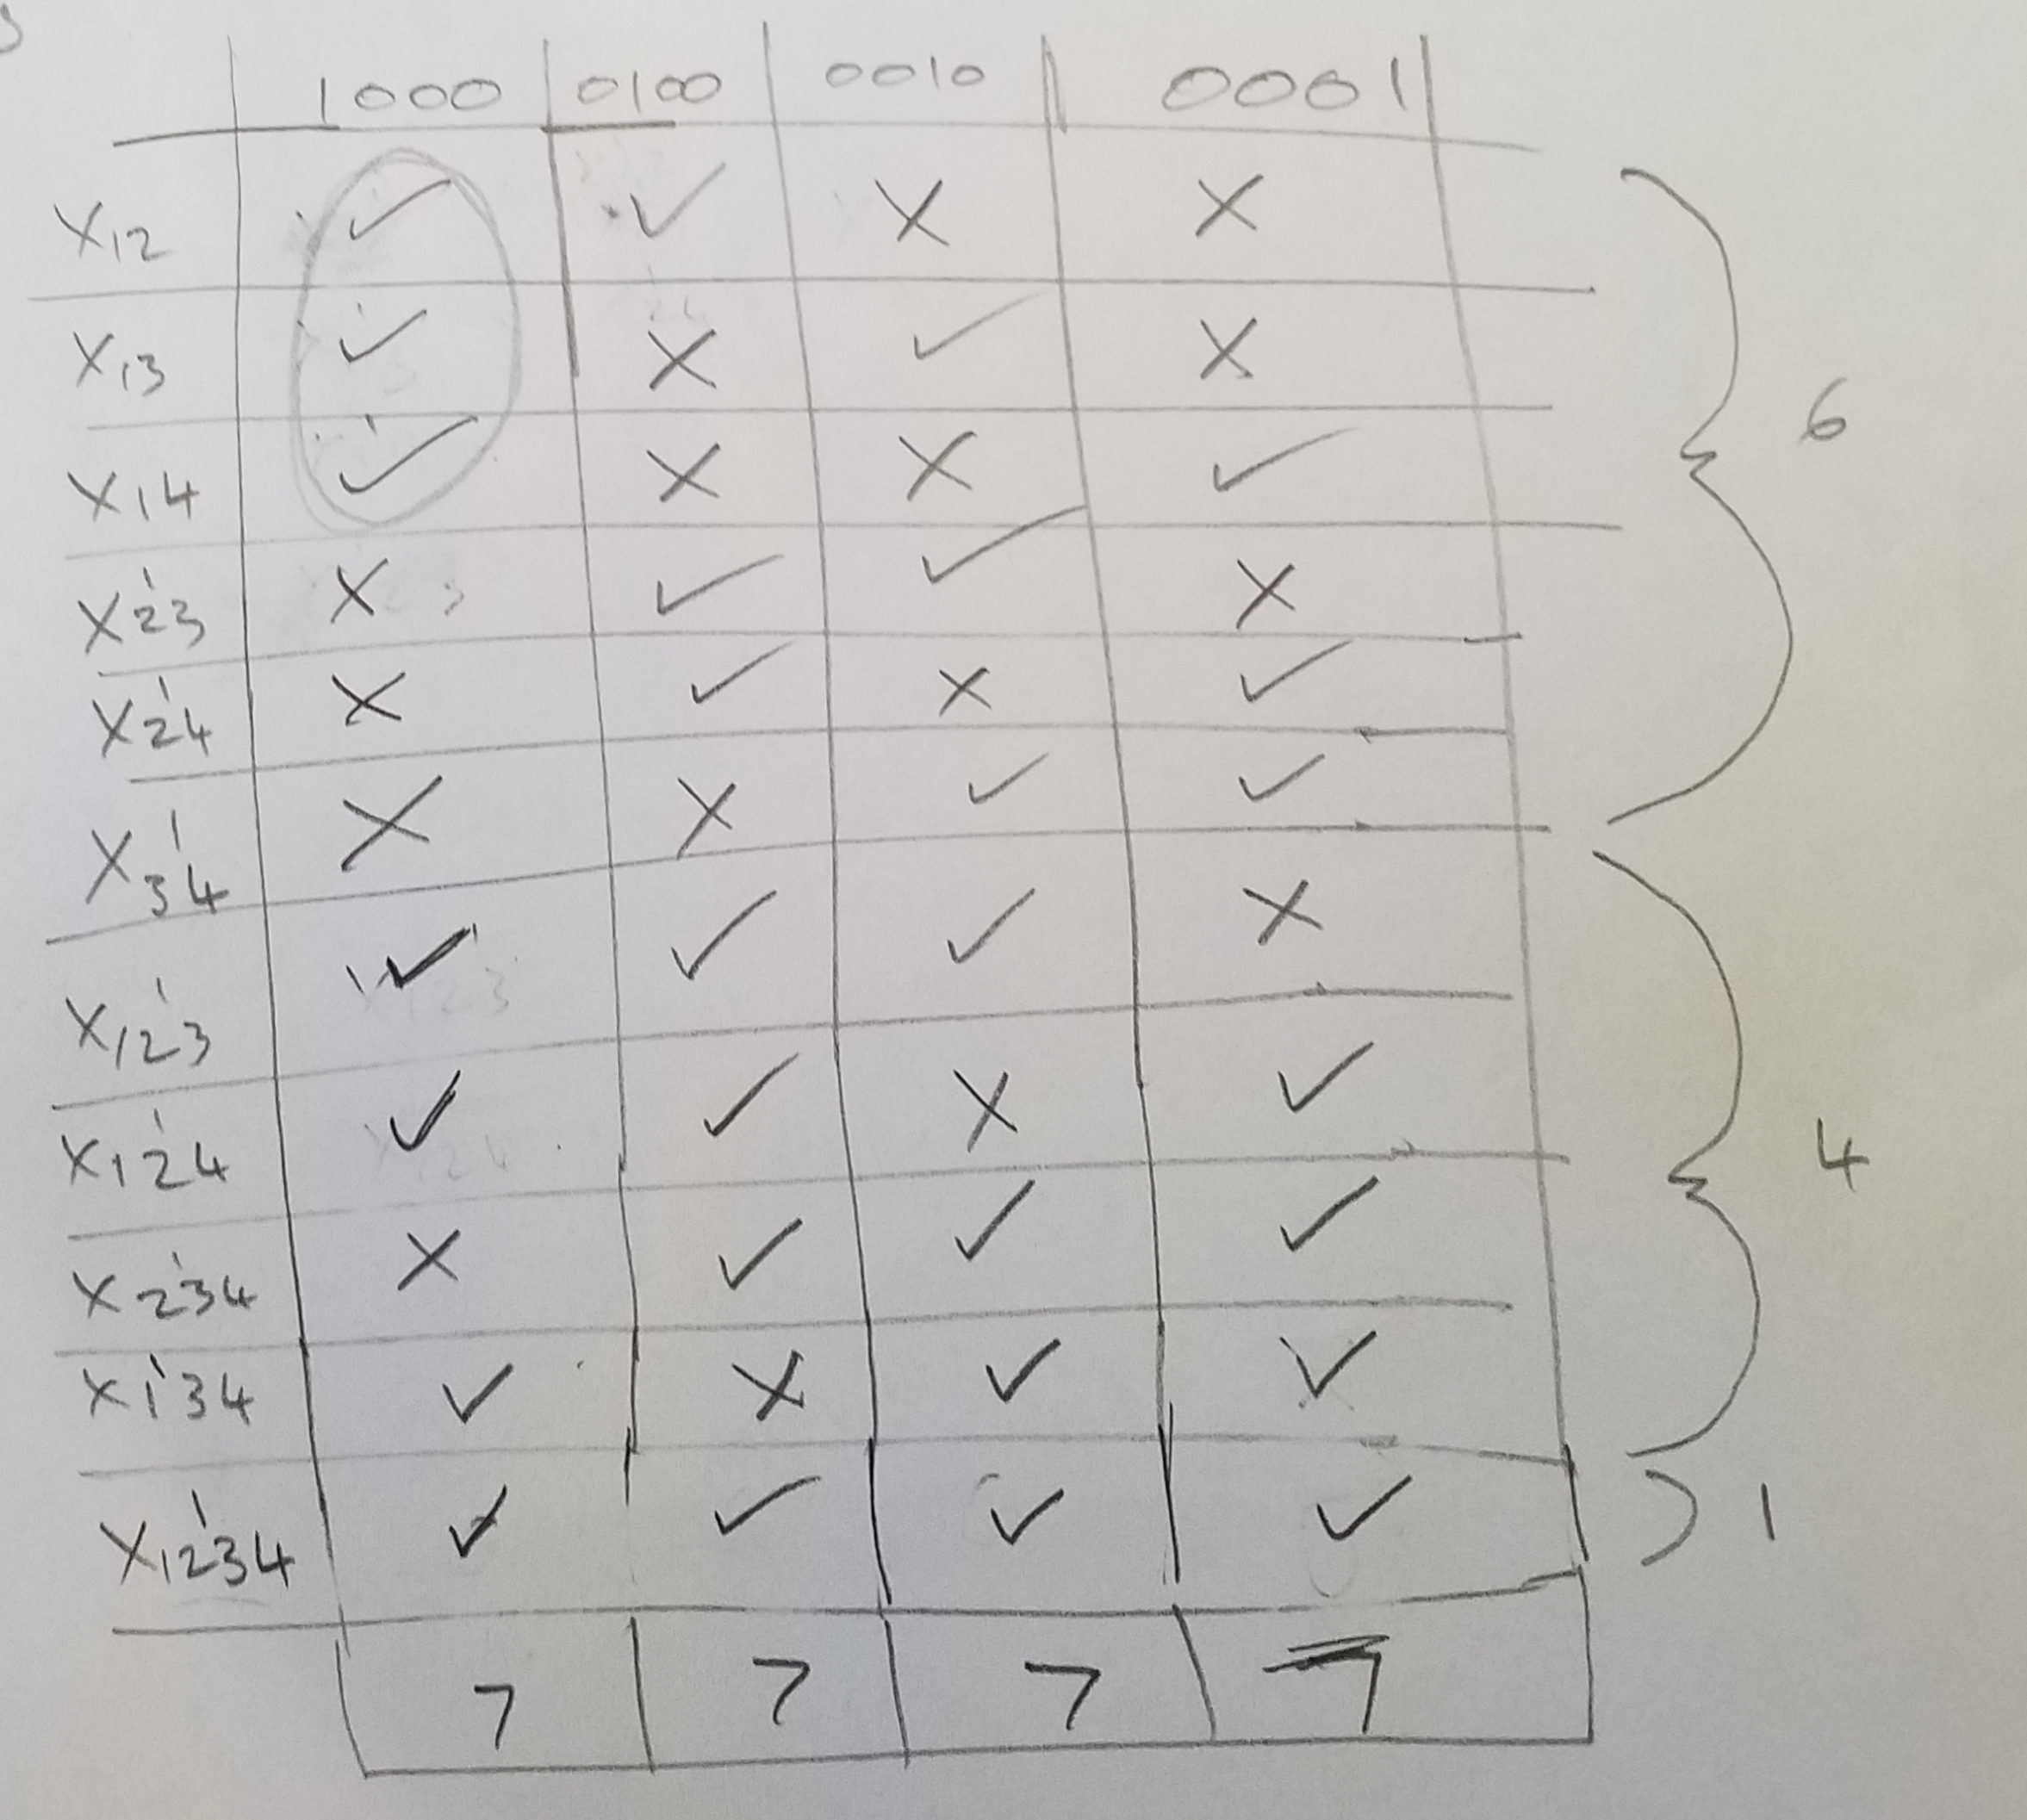 1000 0100 0010 0001
X12 ✓ ✓ X X
X13 ✓ X ✓ X
X14 ✓ X X ✓
X23 X ✓ ✓ X
X24 X ✓ X ✓
X34 X X ✓ ✓
6
X123 ✓ ✓ ✓ X
X124 ✓ ✓ X ✓
X234 X ✓ ✓ ✓
X134 ✓ X ✓ ✓
4
X1234 ✓ ✓ ✓ ✓
1
7 7 7 7